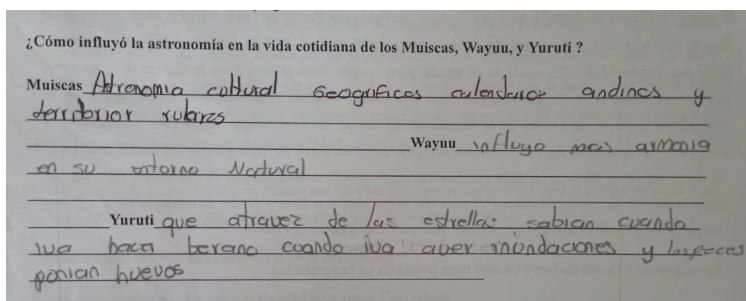 ¿Cómo influyó la astronomía en la vida cotidiana de los Muiscas, Wayuu, y Yuruti ?
Muiscas Astronomia cultural Geograficos calendarios andinos y
territorior rurares
Wayuu influyo mas armonia
en su entorno Natural
Yuruti que atravez de las estrellas sabian cuando
iva hacer berano cuando iva aver inundaciones y los peces
ponian huevos